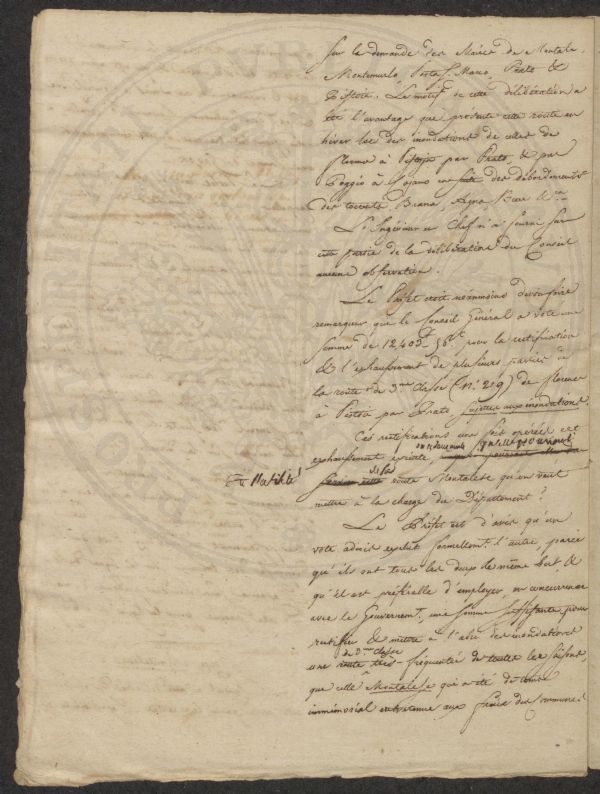 sur la demande des Maires de Montale,
Montemurlo, Porta S. Marco, Prato &
Pistoie. Le motif de cette délibération a
été l'avantage que présente cette route en
hiver lors des inondations de celles de
Florence à Pistoja par Prato, & par
Poggio à Cajano en suite des débordements
des torrents Brana, Agna &.ca
L'Ingénieur en Chef n'a fourni sur
cette partie de la délibération du Conseil
aucune observation.
Le Préfet croit néanmoins devoir faire
remarquer que le Conseil Général a voté une
somme de 12,403f 56c pour la rectification
& l'exhaussement de plusieurs parties de
la route de 3me classe (N.° 219) de Florence
à Pistoie par Prato, sujettes aux inondations.
Ces rectifications une fois opérées cet
exhaussement exécuté, qu'elle est l'utilité
de la route Montalese qu'on veut
mettre à la charge du Département?
Le Préfet est d'avis qu'un
vote admis exclut formellemt. l'autre, parce
qu'ils ont tous les deux le même but &
qu'il est préférable d'employer, en concurrence
avec le Gouvernemt, une somme suffisante pour
rectifier & mettre à l'abri des inondations
de 3me classe
une route très-fréquentée de toutes les saisons,
que celle Montalese qui a été de tems
immémorial entretenue aux frais des Communes.